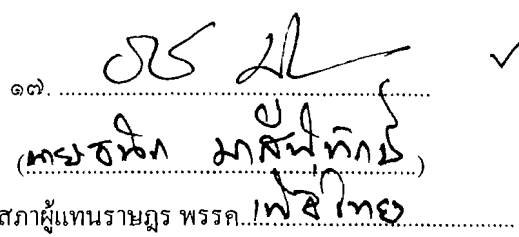 ๑๗.
(นายธนิก มาสีพิทักษ์)
สภาผู้แทนราษฎร พรรค เพื่อไทย